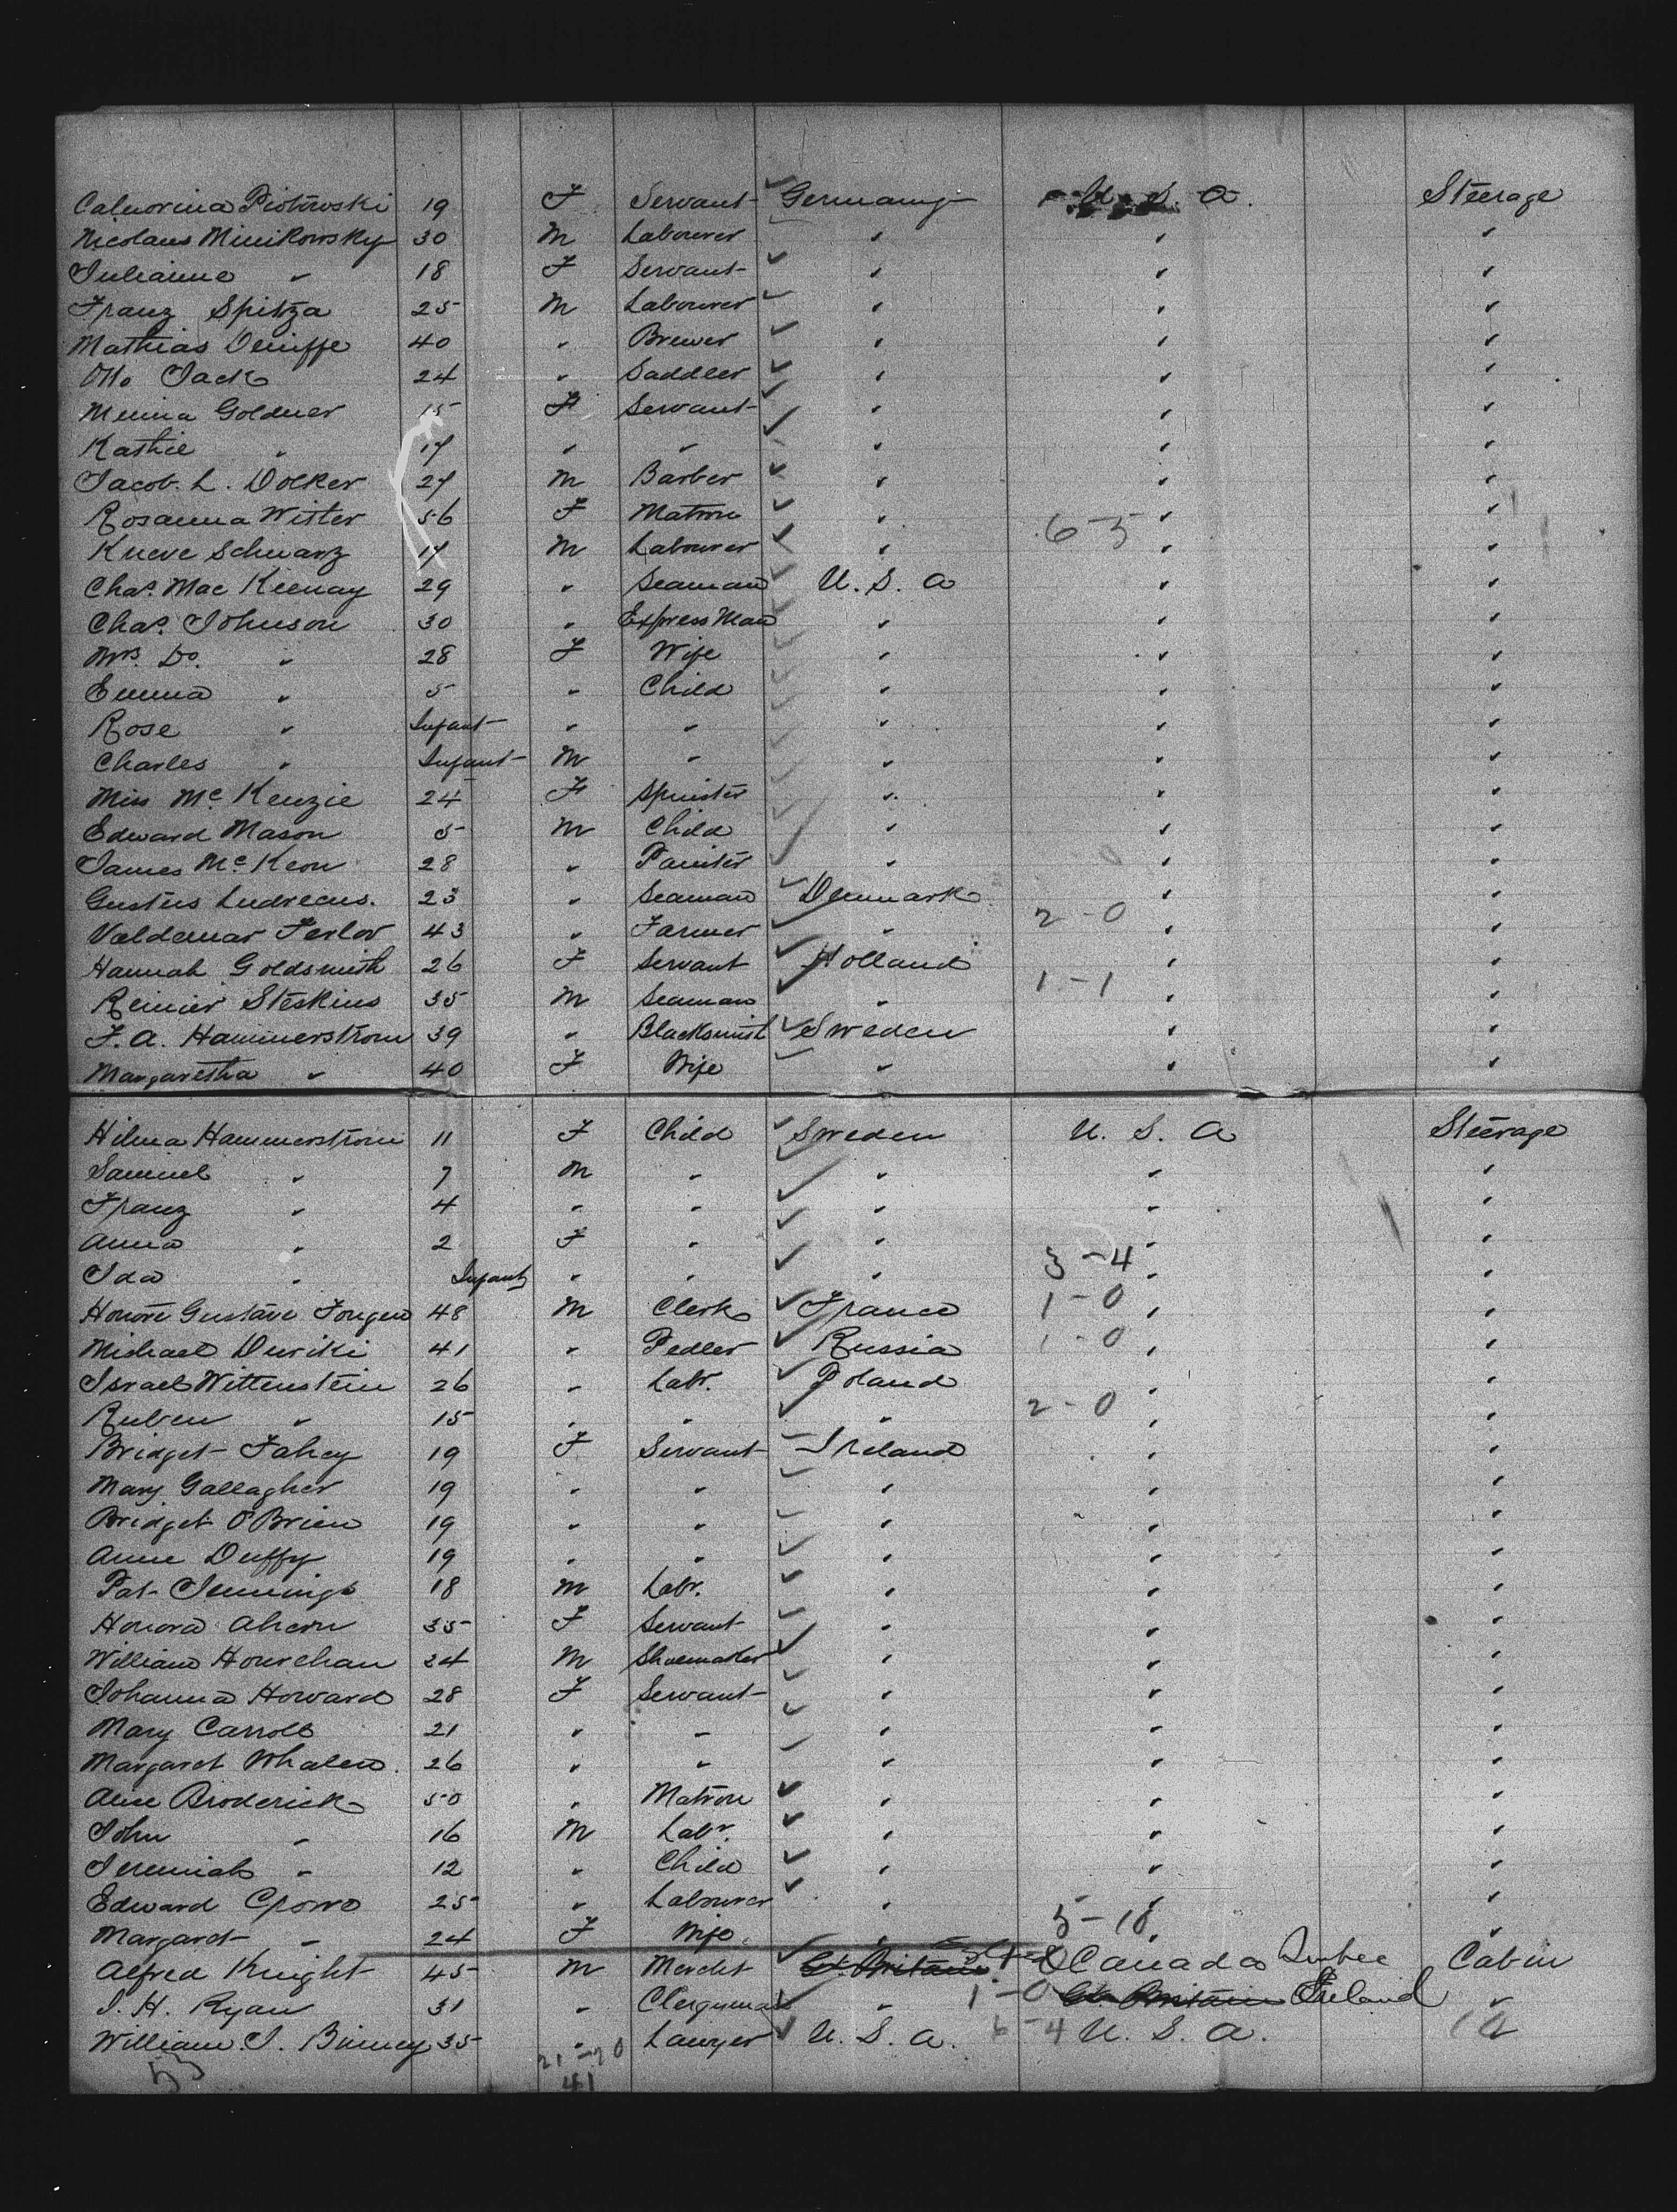 Catnorina Piotrowski 19 F Servant Germany U. S. A. Steerage
Nicolaus Minikowsky 30 M Labourer " " "
Julianne " 18 F Servant " " "
Franz Spitza 25 M Labourer " " "
Mathias Deniffe 40 " Brewer " " "
Otto Jack 24 " Saddler " " "
Minna Goldner 15 F Servant " " "
Kathie " 17 " " " " "
Jacob. L. Dolker 27 M Barber " " "
Rosanna Wister 56 F Matron " 6-5 " "
Kneve Schwarz 17 M Labourer " " "
Chas. Mac Keenay 29 " Seaman U. S. A " "
Chas. Johnson 30 " Express Man " " "
Mrs. Do. " 28 F Wife " " "
Emma " 5 " Child " " "
Rose " Infant " " " " "
Charles " Infant M " " " "
Miss McKenzie 24 F Spinster " " "
Edward Mason 5 M Child " " "
James McKeon 28 " Painter " " "
Gustus Ludrecus. 23 " Seaman Denmark " "
Valdemar Ferlov 43 " Farmer " 2-0 " "
Hannah Goldsmith 26 F Servant Holland " "
Reinier Steskins 35 M Seaman " 1-1 " "
F. A. Hammerstrom 39 " Blacksmith Sweden " "
Margaretha " 40 F Wife " " "
Hilma Hammerstrom 11 F Child Sweden U. S. A Steerage
Samuel " 7 M " " " "
Franz " 4 " " " " "
Anna " 2 F " " " "
Ida " Infant " " " 3-4 " "
Honore Gustave Fongen 48 M Clerk France 1-0 " "
Michael Duriki 41 " Pedler Russia 1-0 " "
Israel Wittenstein 26 " Labr. Poland " "
Ruben " 15 " " " 2-0 " "
Bridget Fahey 19 F Servant Ireland " "
Mary Gallagher 19 " " " " "
Bridget O'Brien 19 " " " " "
Anne Duffy 19 " " " " "
Pat Jennings 18 M Labr. " " "
Honora Ahern 35 F Servant " " "
William Hourehan 24 M Shoemaker " " "
Johanna Howard 28 F Servant " " "
Mary Carroll 21 " " " " "
Margaret Whalen. 26 " " " " "
Alice Broderick 50 " Matron " " "
John " 16 M Labr. " " "
Jeremiah " 12 " Child " " "
Edward Crowe 25 " Labourer " " "
Margaret " 24 F Wife " 5-10 " "
Alfred Knight 45 M Mercht Gt. Britain Canada Quebec Cabin
J. H. Ryan 31 " Clergyman " 1-0 Gt. Britain Ireland "
William. J. Binney 35 " Lawyer U. S. A. 6-4 U. S. A. "
53 21-20
41